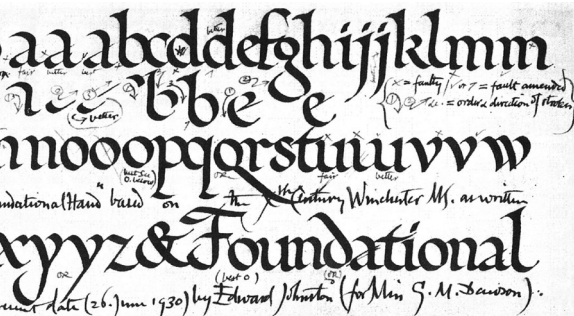 a a a bcdde fghijjklmm
fair better best
better
b b e e
x = faulty / or 1 = fault amended
= order & direction of strokes
nnooopqqrstuuuvvw
fair better
"Foundational Hand" based on the Xth Century Winchester MS. as written
xyyyz&Foundational
OR (best o) (OR)
date (26. June 1930) by Edward Johnston (for Miss G. M. Dawson) :